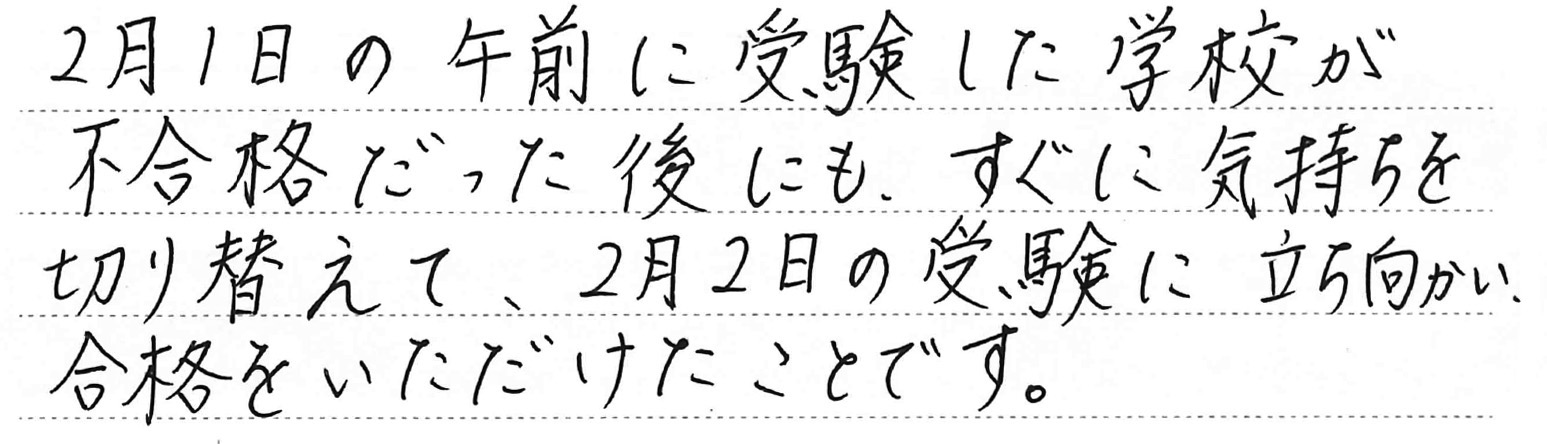 2月1日の午前に受験した学校が
不合格だった後にも、すぐに気持ちを
切り替えて、2月2日の受験に立ち向かい、
合格をいただけたことです。